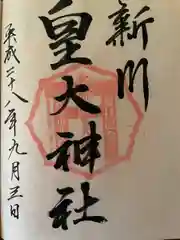 新川
皇大神社
平成二十八年九月三日